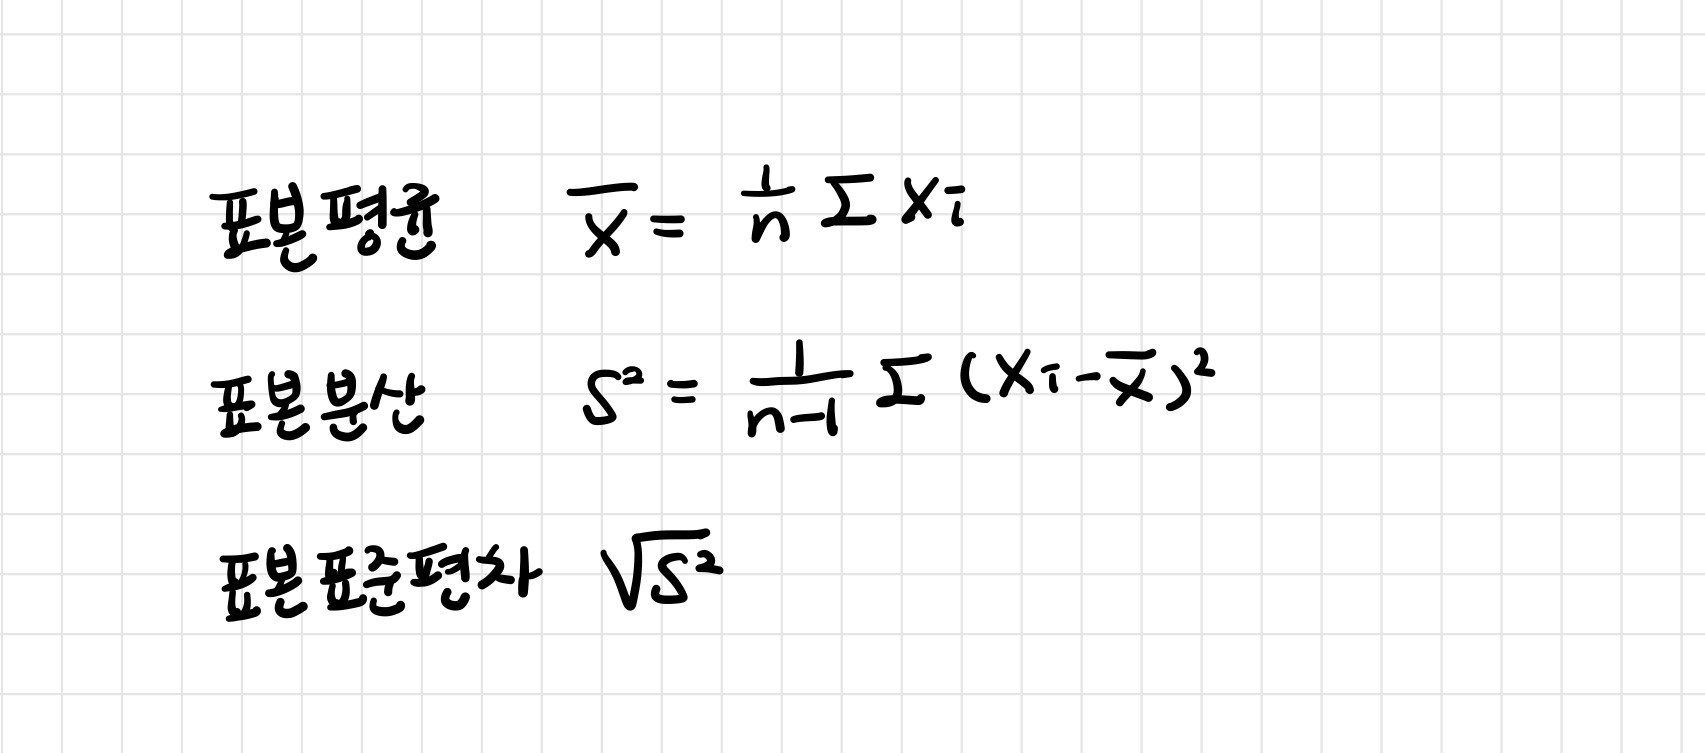 표본평균 x̄ = 1/n Σ xᵢ
표본분산 s² = 1/(n-1) Σ (xᵢ - x̄)²
표본표준편차 √s²